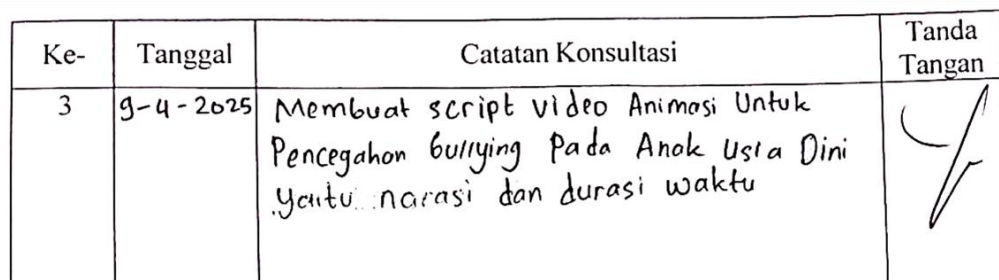 Ke- Tanggal Catatan Konsultasi Tanda Tangan
3 9-4-2025 Membuat script video Animasi Untuk
Pencegahan bullying Pada Anak Usia Dini
yaitu narasi dan durasi waktu